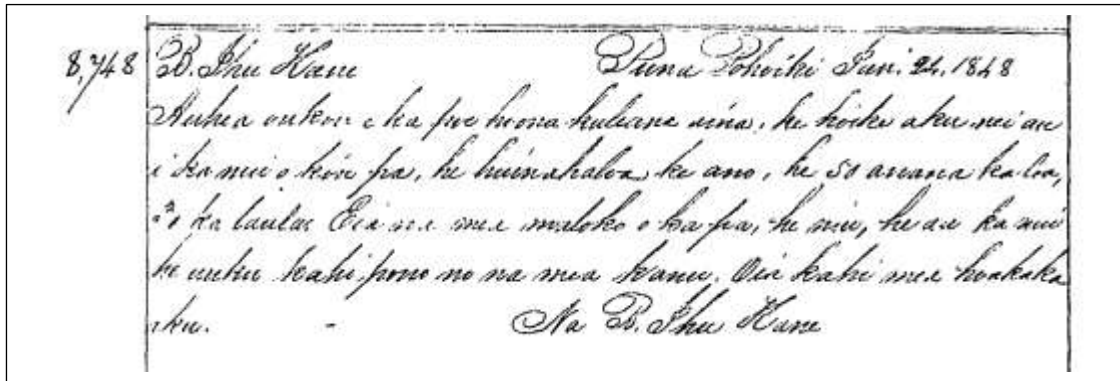 8,748 B. Ihu Kane Puna Pohoiki Jan. 24. 1848
Auhea oukou e ka poe hoona kuleana aina, ke hoike aku nei au
i ka nui o ko'u pa, he huinahaloa ke ano, he 50 anana ka loa,
ka laula. Eia na mea maloko o ka pa, he niu, he ae ka nui
he uuku kahi pono no na mea kanu. Oia kahi mea hoakaka
aku. - Na B. Ihu Kane